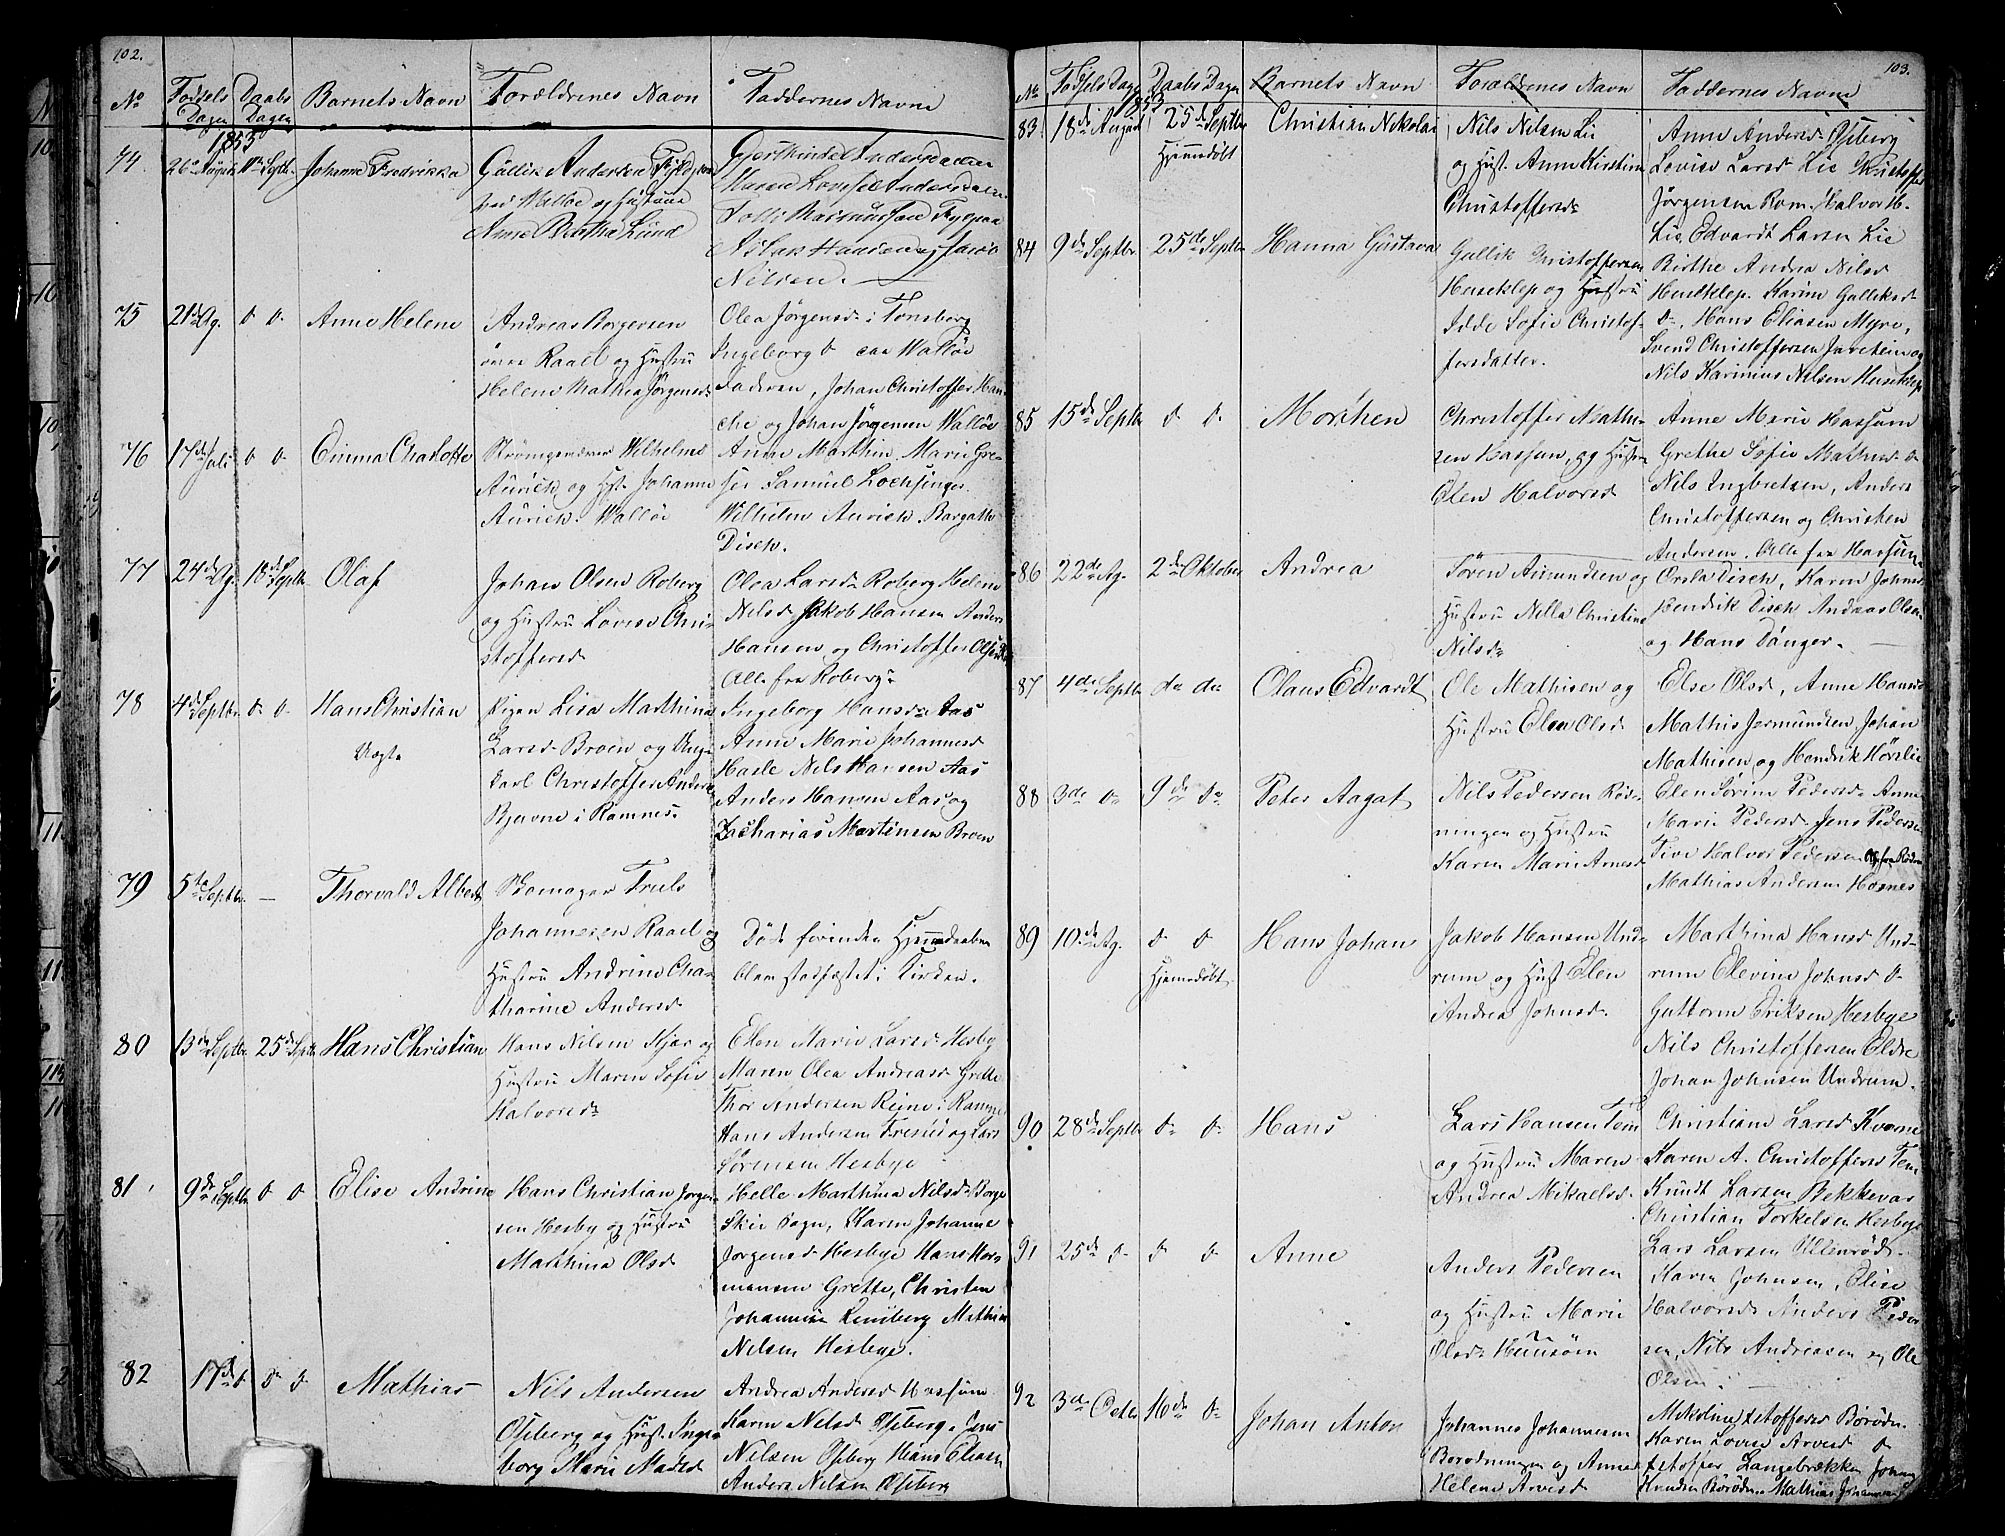 102.
No
Fødsels Dagen
Daabs Dagen
Barnets Navn
Forældrenes Navn
Faddernes Navne
1853
74
26 August
11 Septb.
Johanne Fredrikke
Gullik Andersen
ved Walløe og Hustrue
Anne Birthe Lund
Maren Lovise Andersdatter
Nilsen.
75
21d Ag.
d d
Anne Helene
Andreas Borgersen
øvre Raael og Hustru
Helene Mathea Jørgensd
Olea Jørgensd i Tønsberg
Ingeborg d Walløe
Faderen, Johan Christoffer Han
che og Johan Jørgensen Walløe
76
17de Juli
d d
Emma Charlotte
Wilhelm
Aurich og Hst. Johanne
Aurich. Walløe
Anne Marthin Marie Gre-
Samuel Lochsinger
Wilhelm Aurich. Bargathe
Disch.
77
24d Ag.
18de Septbr
Olaf
Johan Olsen Roberg
og Hustru Lovise Chri-
stoffersd
Olea Larsd Roberg Helene
Nilsd Jakob Hansen Anders
Hansen og Christoffer Olsen
Alle fra Roberg
78
4d Septbr.
d d
Hans Christian
Uægte
Pigen Lisa Marthina
Larsd Broen og Ung-
karl Christoffer Anders
Bjerne i Ramnes
Ingeborg Hansd Aas
Anne Marie Johannesd
Hasle Nils Hansen Aas
Anders Hansen Aas og
Zacharias Martinsen Broen
79
5te Septbr.
—
Thorvald Albert
Skomager Truls
Johannesen Raael og
Hustru Andrine Cha-
tharine Andersd
Døde forinden Hjemmedaaben
blev stadfæstet i Kirken.
80
13de Septbr.
25d Septbr
Hans Christian
Hans Nilsen Kjær og
Hustru Maren Sofie
Halvorsd
Elen Marie Larsd Hesby
Maren Olea Andreasd Grette
Thor Andersen Reine i Ramnes
Hans Andersen og Lars
Sørensen Hesbye
81
9de Septbr
d d
Elise Andrine
Hans Christian Jørgen-
sen Hesby og Hustru
Marthina Olsd
Helle Marthina Nilsd Borge
Skie Sogn, Karen Johanne
Jørgensd Hesbye Hans Her-
mansen Grette, Christen
Johannesen Mathias
Nilsen Hesbye.
82
17d d
d d
Mathias
Nils Andersen
Oseberg og Hust. Inge-
borg Marie Madsd
Andrea Andersd Hassum
Karen Nilsd Oseberg. Jens
Nilsen Oseberg Hans Eliasen
Anders Nilsen Oseberg
103.
No
Fødsels Dage
Daabs Dagen
Barnets Navn
Forældrenes Navn
Faddernes Navne
1853
83
18de August
25de Septbr
Hjemmedøbt
Christian Nikolai
Nils Nilsen Lie
og Hust. Anne Kirstine
Christoffersd
Anne Andersd Oseberg
Lovise Larsd Lie Kristoffer
Jørgensen Rom. Halvor H.
Lie, Edvardt Larsen Lie
84
9de Septbr.
25de Septbr
Hanna Gustava
Gullik Christoffersen
Huseklep og Hustru
Idde Sofie Christof-
fersdatter.
Birthe Andrea Nilsd
Huseklep. Karine Gulliksd
d. Hans Eliasen Myre,
Svend Christoffersen Jareteien og
Nils Karinius Nilsen Huseklep
85
15de Septbr
d d
Morthen
Christoffer Mathi-
sen Hassum, og Hustru
Elen Halvorsd
Anne Marie Hassum
Grethe Sofie Mathisd d
Nils Ingbretsen, Anders
Christoffersen og Christen
Andersen. Alle fra Hassum
86
22de Ag.
2de Oktober
Andrea
Søren Amundsen og
Hustru Nella Christine
Nilsd
Orsla Disch, Karen Johnsd
Hendrik Disch Andreas Olsen
og Hans Danger.
87
4de Septbr
do do
Olaus Edvardt
Ole Mathisen og
Hustru Elen Olsd
Else Olsd, Anne Hansd
Mathis Jermundsen, Johan
Mathisen og Hendrik Hørslie
88
3de d
9de d
Peter Aagat
Nils Pedersen Rød-
ningen og Hustru
Karen Marie Arnesd
Elen Sørine Pedersd Anne
Marie Pedersd Jens Pedersen
Halvor Pedersen
Mathias Andersen Hornes
89
10de Ag.
d d
Hjemmedøbt
Hans Johan
Jakob Hansen Und-
rum og Hust Elen
Andrea Johnsd
Marthina Hansd Und-
rum Elevine Johnsd d
Guttorm Eriksen Hesbye
Nils Christoffersen
Johan Johnsen Undrum.
90
28de Septbr
d d
Hans
Lars Hansen Tem
og Hustru Maren
Andrea Mikaelsd
Christiane Larsd Kverne
Karen A. Christoffersd Tem
Knudt Larsen Bekkevar
Christian Torkelsen Hesbye
Lars Larsen Ullenrød
91
25de d
d d
Anne
Anders Pedersen
og Hustru Marie
Olsd
Karen Johnsen, Elise
Halvorsd Anders Peder
sen, Nils Andreasen og Ole
Olsen
92
3de Octbr
16de d
Johan Anton
Johannes Johannesen
Borødningen og Anne
Helene Arvesd
Karen Lovise Arvesd d
Langebrækken Johan
Knudsen Mathias Johannesen